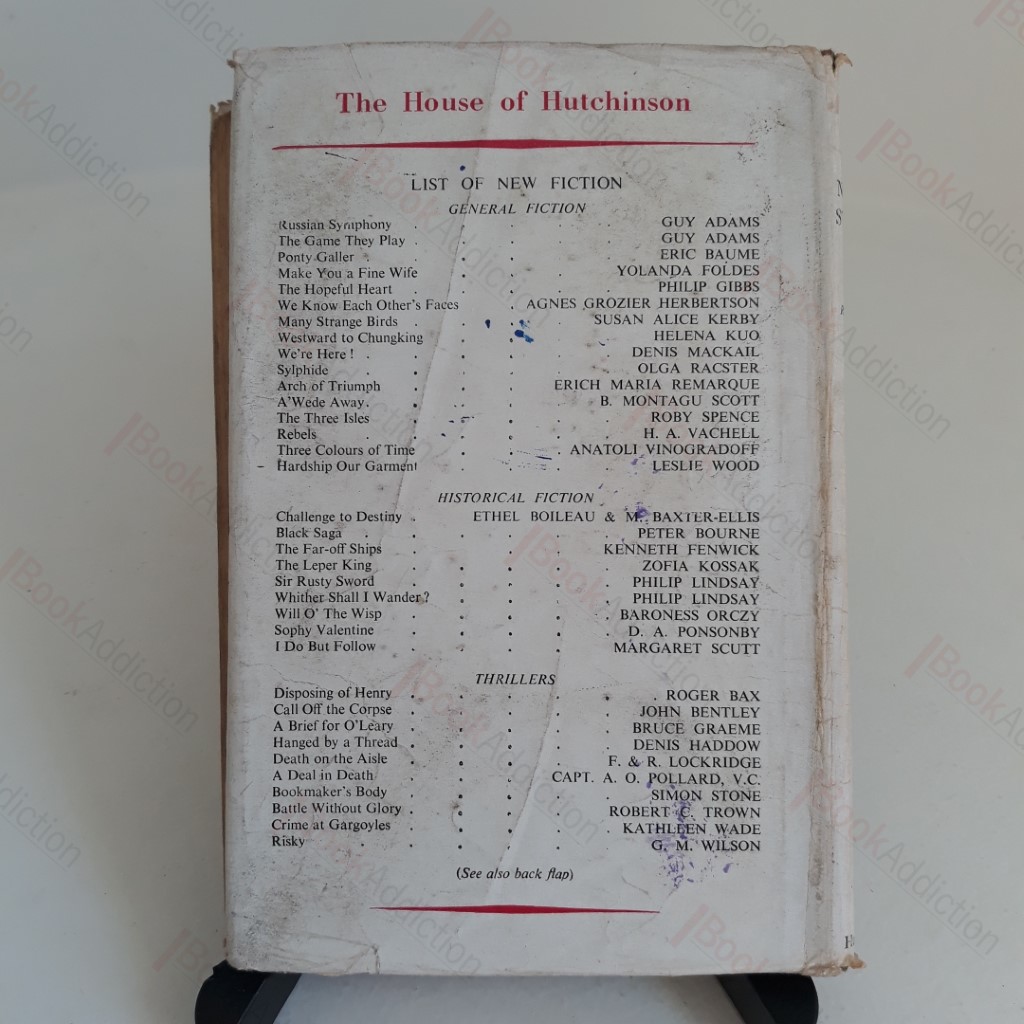 The House of Hutchinson
LIST OF NEW FICTION
GENERAL FICTION
Russian Symphony . . . . GUY ADAMS
The Game They Play . . . . GUY ADAMS
Ponty Galler . . . . ERIC BAUME
Make You a Fine Wife . . . YOLANDA FOLDES
The Hopeful Heart . . . . PHILIP GIBBS
We Know Each Other's Faces . AGNES GROZIER HERBERTSON
Many Strange Birds . . . SUSAN ALICE KERBY
Westward to Chungking . . . HELENA KUO
We're Here ! . . . . DENIS MACKAIL
Sylphide . . . . OLGA RACSTER
Arch of Triumph . . . ERICH MARIA REMARQUE
A'Wede Away . . . . B. MONTAGU SCOTT
The Three Isles . . . . ROBY SPENCE
Rebels . . . . H. A. VACHELL
Three Colours of Time . . . ANATOLI VINOGRADOFF
Hardship Our Garment . . . LESLIE WOOD
HISTORICAL FICTION
Challenge to Destiny . ETHEL BOILEAU & M. BAXTER-ELLIS
Black Saga . . . . PETER BOURNE
The Far-off Ships . . . . KENNETH FENWICK
The Leper King . . . . ZOFIA KOSSAK
Sir Rusty Sword . . . . PHILIP LINDSAY
Whither Shall I Wander? . . . PHILIP LINDSAY
Will O' The Wisp . . . . BARONESS ORCZY
Sophy Valentine . . . . D. A. PONSONBY
I Do But Follow . . . . MARGARET SCUTT
THRILLERS
Disposing of Henry . . . . ROGER BAX
Call Off the Corpse . . . . JOHN BENTLEY
A Brief for O'Leary . . . . BRUCE GRAEME
Hanged by a Thread . . . . DENIS HADDOW
Death on the Aisle . . . . F. & R. LOCKRIDGE
A Deal in Death . . . CAPT. A. O. POLLARD, V.C.
Bookmaker's Body . . . . SIMON STONE
Battle Without Glory . . . . ROBERT C. TROWN
Crime at Gargoyles . . . . KATHLEEN WADE
Risky . . . . G. M. WILSON
(See also back flap)
BookAddiction